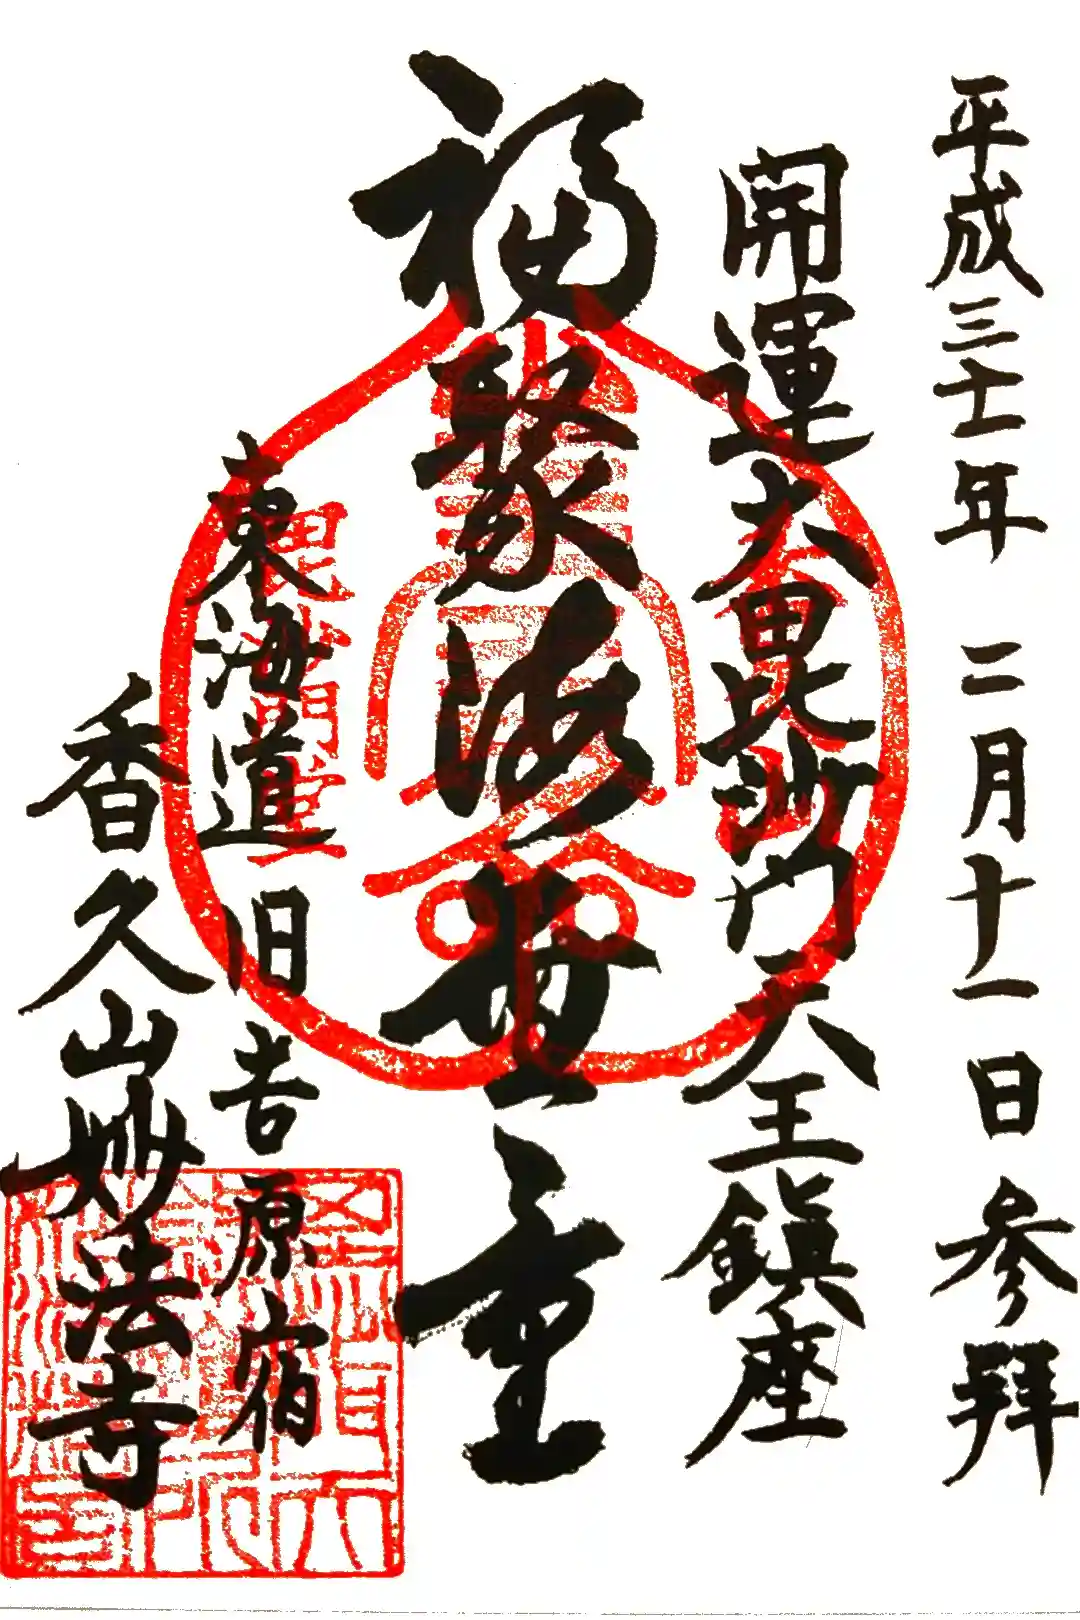 平成三十一年 二月十一日 参拝
開運大毘沙門天王鎭座
福聚海無量
東海道 旧吉原宿
香久山妙法寺